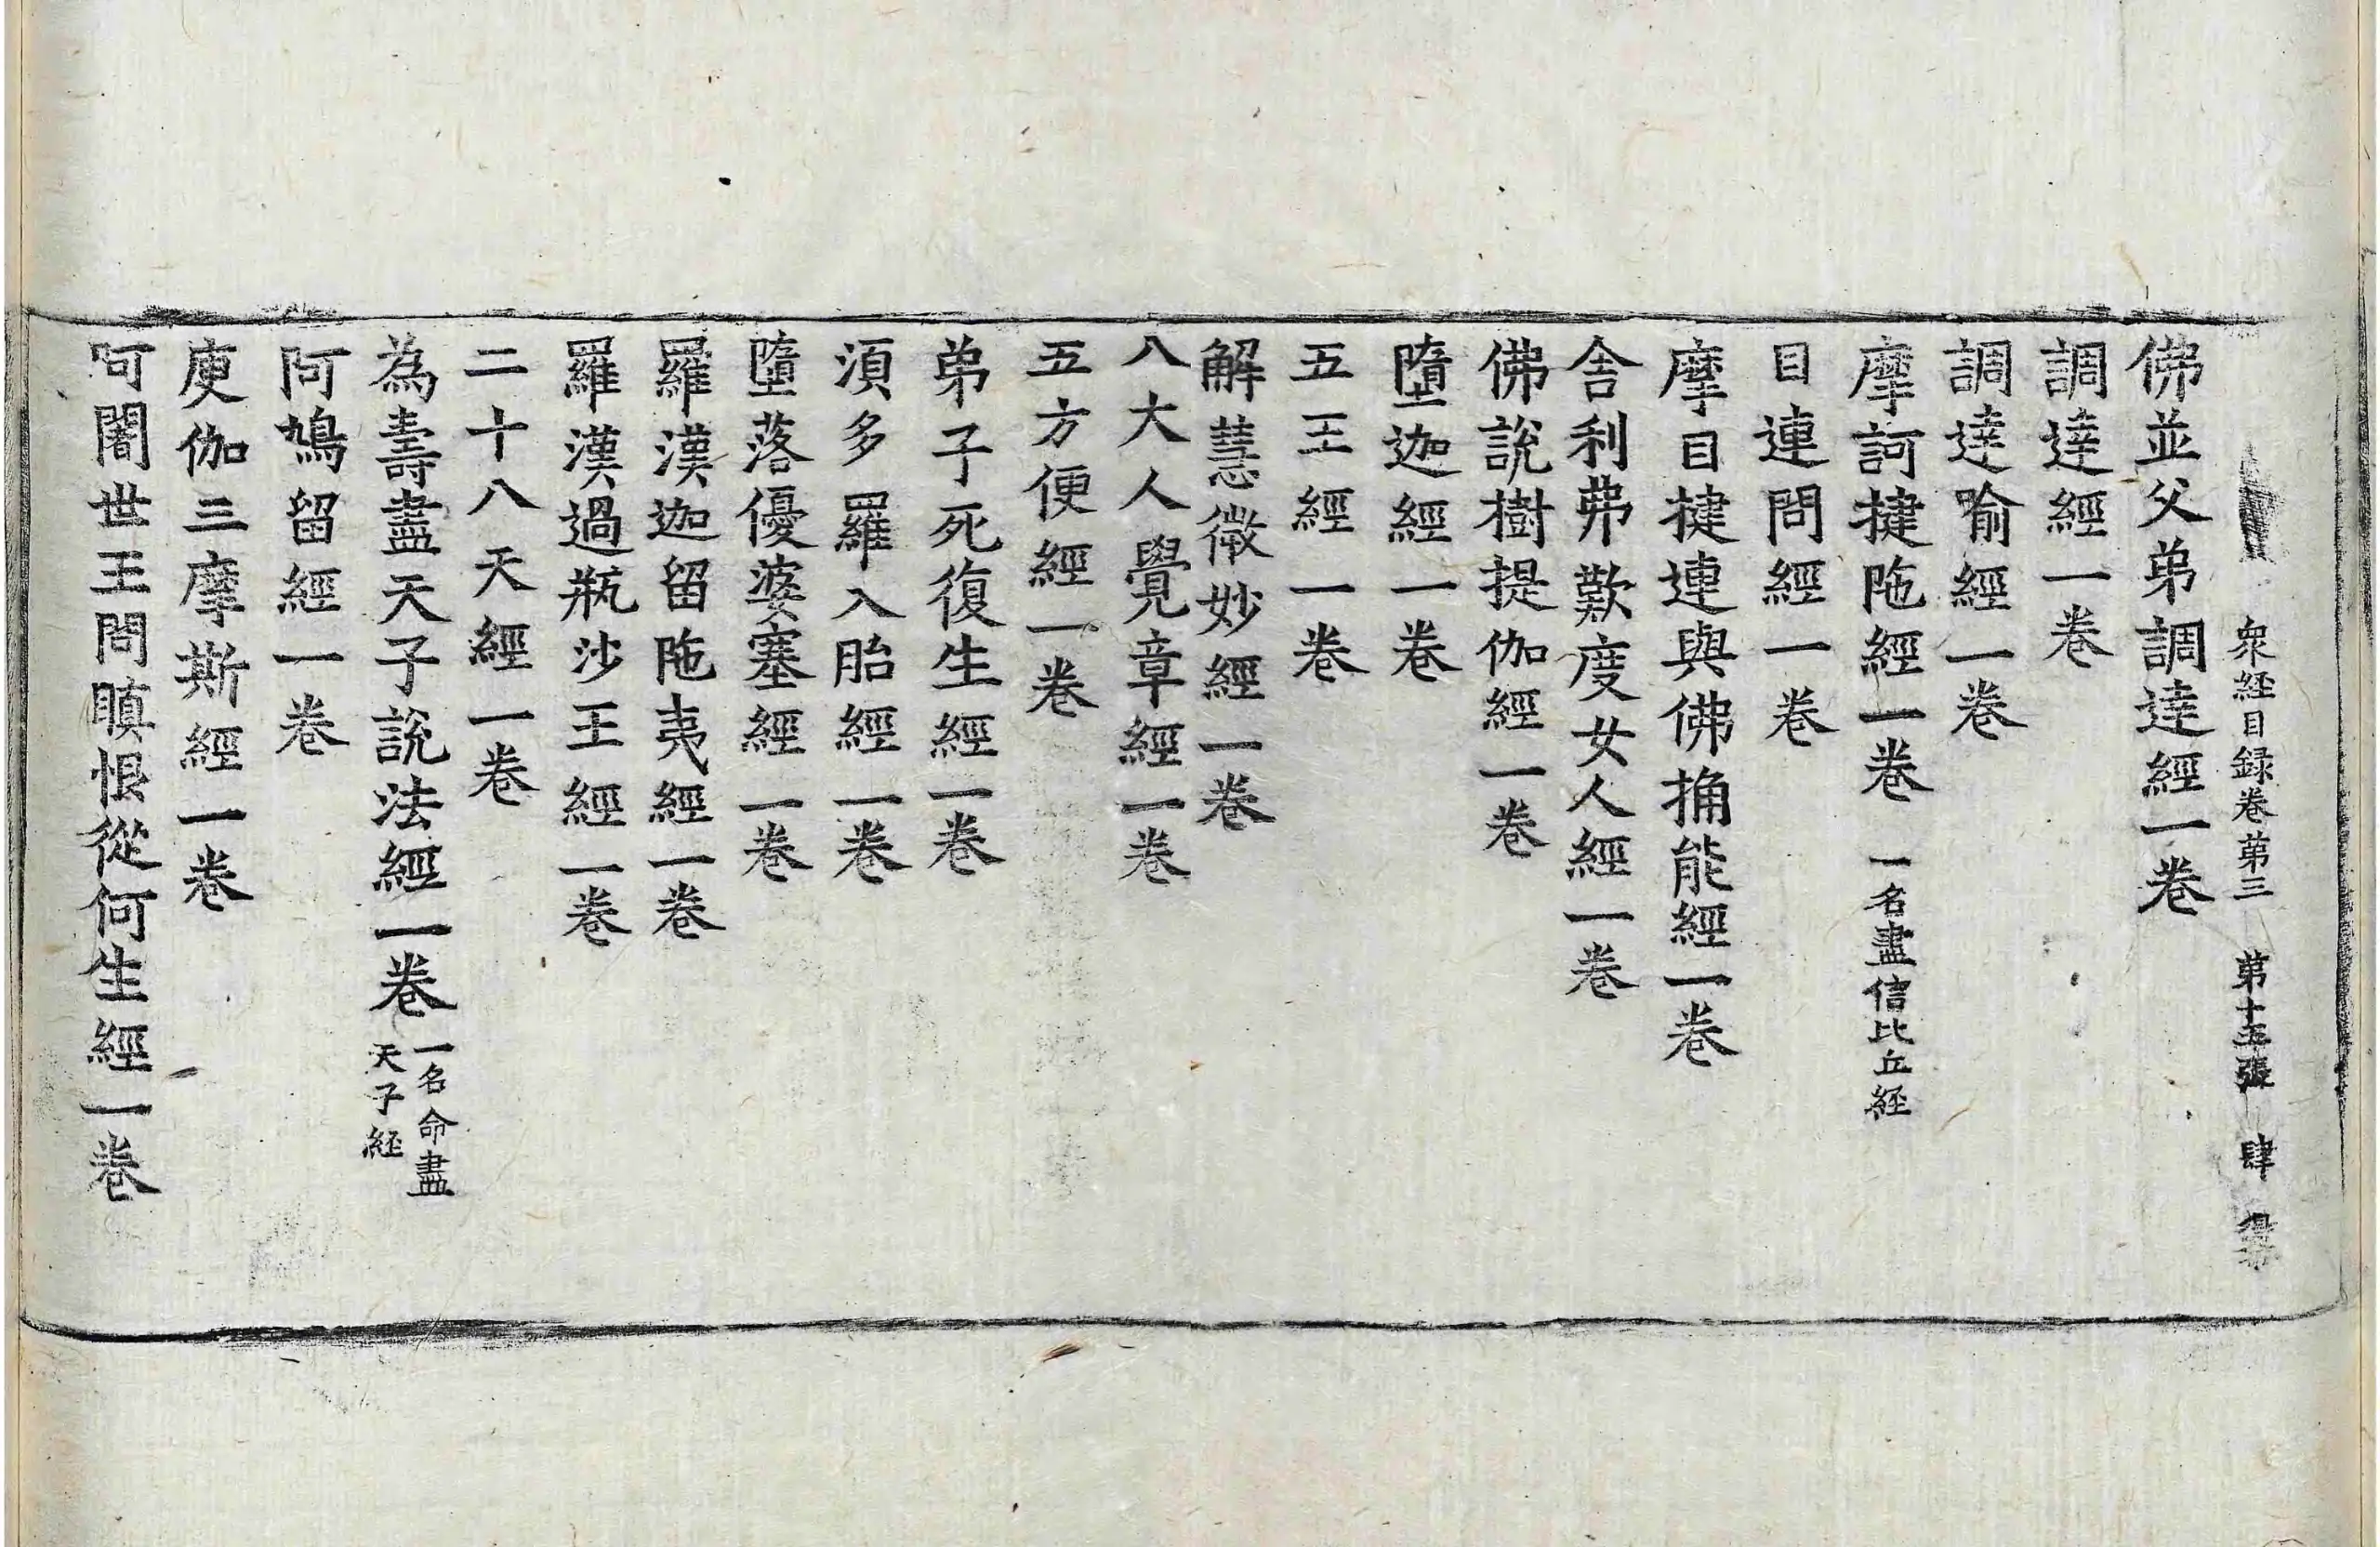 衆経目録卷苐三 苐十五張 肆
佛並父弟調達經一卷
調達經一卷
調達喻經一卷
摩訶揵陁經一卷 一名盡信比丘経
目連問經一卷
摩目揵連與佛捔能經一卷
舍利弗歎度女人經一卷
佛說樹提伽經一卷
墮迦經一卷
五王經一卷
解慧微妙經一卷
八大人覺章經一卷
五方便經一卷
弟子死復生經一卷
湏多羅入胎經一卷
墮落優婆塞經一卷
羅漢迦留陁夷經一卷
羅漢過瓶沙王經一卷
二十八天經一卷
為壽盡天子說法經一卷 一名命盡
天子経
阿鳩留經一卷
庾伽三摩斯經一卷
阿闍世王問瞋恨從何生經一卷